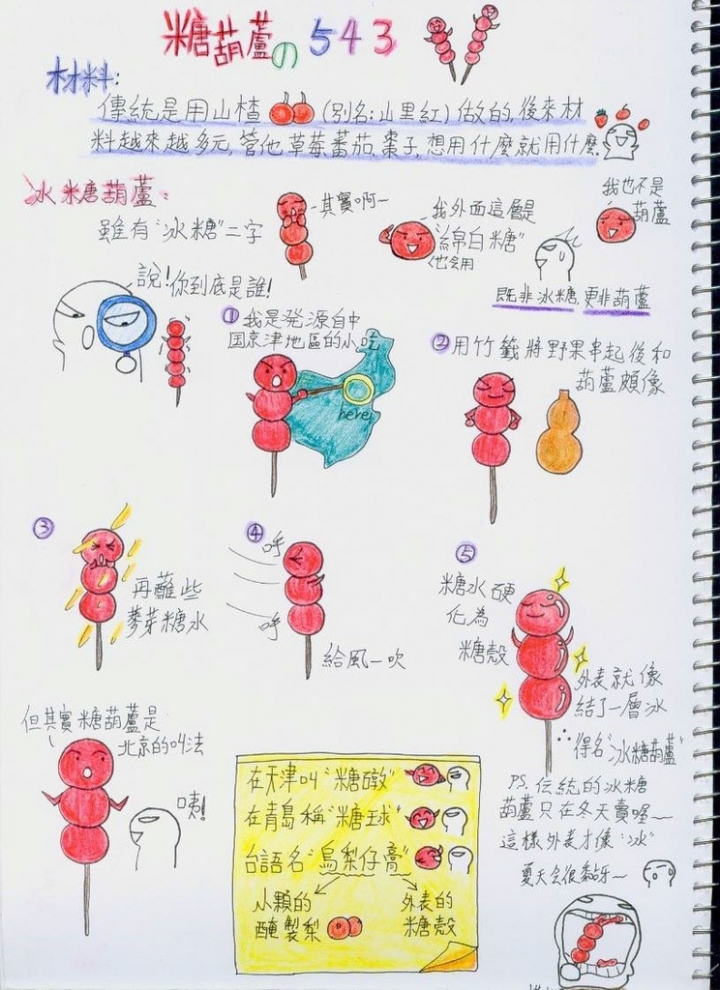 糖葫蘆の543
材料:
傳統是用山楂(別名:山里紅)做的,後來材
料越來越多元,管他草莓、蕃茄、棗子,想用什麼就用什麼
冰糖葫蘆:
雖有"冰糖"二字
其實啊~
我外面這層是
"綿白糖"
也會用
我也不是
葫蘆
既非冰糖,更非葫蘆
說!你到底是誰!
① 我是発源自中
国京津地區的小吃
here
② 用竹籤將野果串起後和
葫蘆頗像
③
再蘸些
麥芽糖水
④
呼
呼
給風一吹
⑤
糖水硬
化為
糖殼
外表就像
結了一層冰
∴得名"冰糖葫蘆"
但其實糖葫蘆是
北京的叫法
咦!
在天津叫"糖墩"
在青島稱"糖球"
台語名"鳥梨仔膏"
小顆的
醃製梨
外表的
糖殼
PS.伝統的冰糖
葫蘆只在冬天賣喔~
這樣外表才像"冰"
夏天会很黏牙~